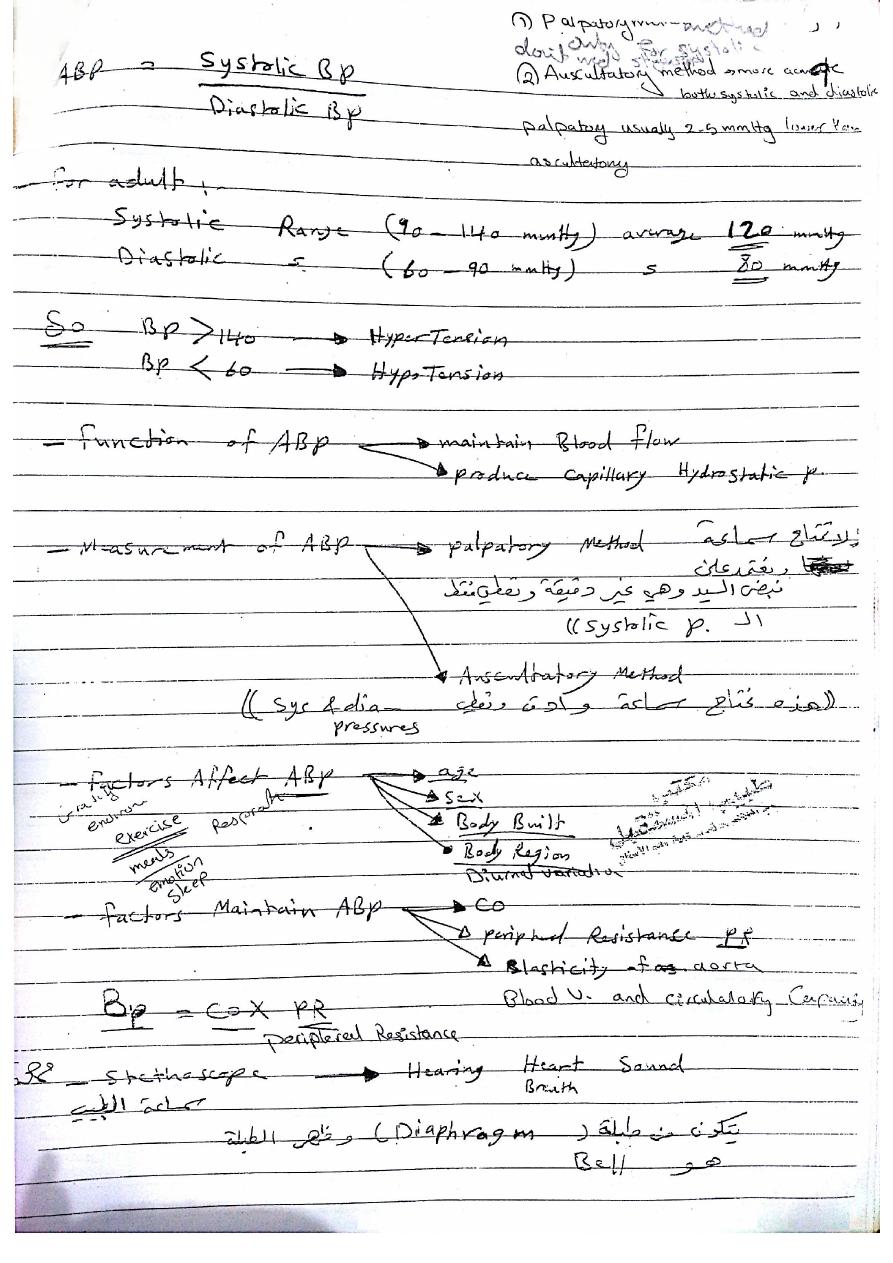 ① Palpatory method
only for systolic
② Auscultatory method more accurate
both systolic and diastolic
palpatory usually 2-5 mmHg lower than
ascultatory
ABP = Systolic Bp
Diastolic Bp
- for adult :
Systolic Range (90 - 140 mmHg) average 120 mmHg
Diastolic s (60 - 90 mmHg) s 80 mmHg
So Bp > 140 → HyperTension
Bp < 60 → HypoTension
- Function of ABp → maintain Blood flow
→ produce Capillary Hydrostatic p.
- Measurement of ABP → palpatory Method لا تحتاج سماعة
وتعتمد على
نبض اليد وهي غير دقيقة وتعطي فقط
الـ systolic p. ))
→ Auscultatory Method
((هذه تحتاج سماعة وادق وتعطي sys & dia ))
pressures
- factors Affect ABp → age
→ Sex
→ Body Built
→ Body Region
Diurnal variation
gravity
environ
exercise
Respirat
meals
emotion
Sleep
- factors Maintain ABp → CO
→ peripheral Resistance PR
→ Elasticity of aorta
Blood V. and circulatory Capacity
Bp = CO X PR
peripheral Resistance
- Stethascope → Hearing Heart Sound
Breath
سماعة الطبيب
يتكون من طبلة (Diaphragm) وظهر الطبلة
هو Bell